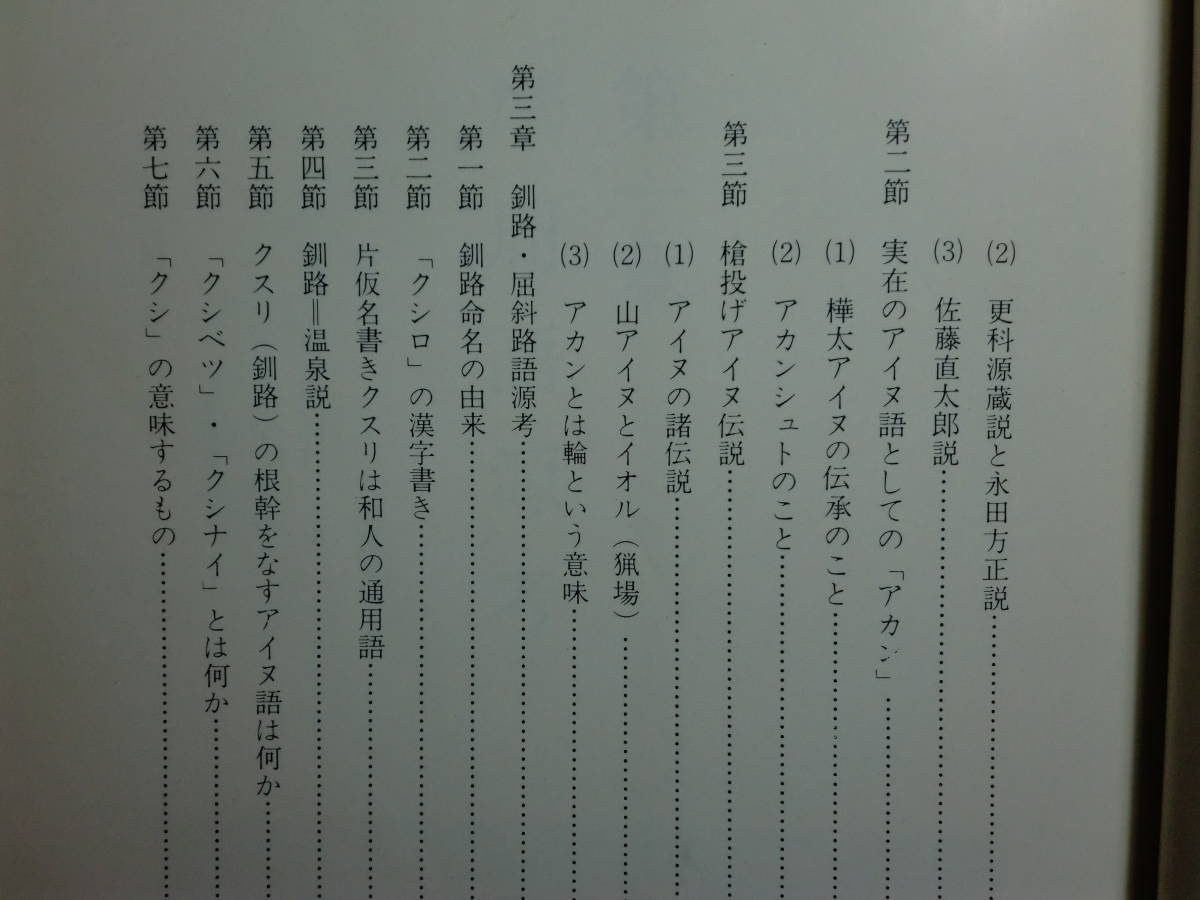 (2) 更科源蔵説と永田方正説……………………
(3) 佐藤直太郎説……………………
第二節 実在のアイヌ語としての「アカン」……………………
(1) 樺太アイヌの伝承のこと……………………
(2) アカンシュトのこと……………………
第三節 槍投げアイヌ伝説……………………
(1) アイヌの諸伝説……………………
(2) 山アイヌとイオル(猟場)……………………
(3) アカンとは輪という意味……………………
第三章 釧路・屈斜路語源考……………………
第一節 釧路命名の由来……………………
第二節 「クシロ」の漢字書き……………………
第三節 片仮名書きクスリは和人の通用語……………………
第四節 釧路=温泉説……………………
第五節 クスリ(釧路)の根幹をなすアイヌ語は何か……………………
第六節 「クシベツ」・「クシナイ」とは何か……………………
第七節 「クシ」の意味するもの……………………